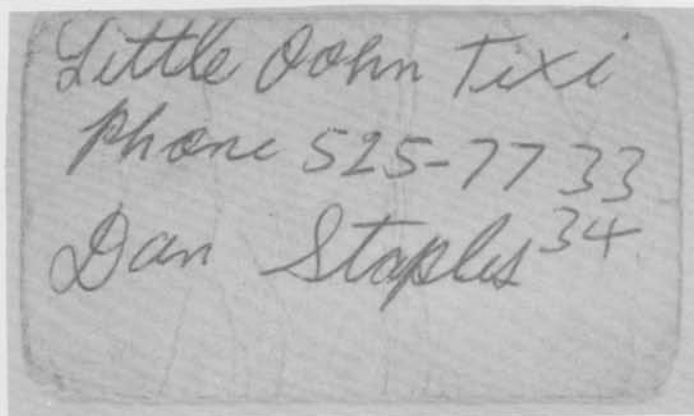 Little John Tixi
Phone 525-7733
34
Dan Staples